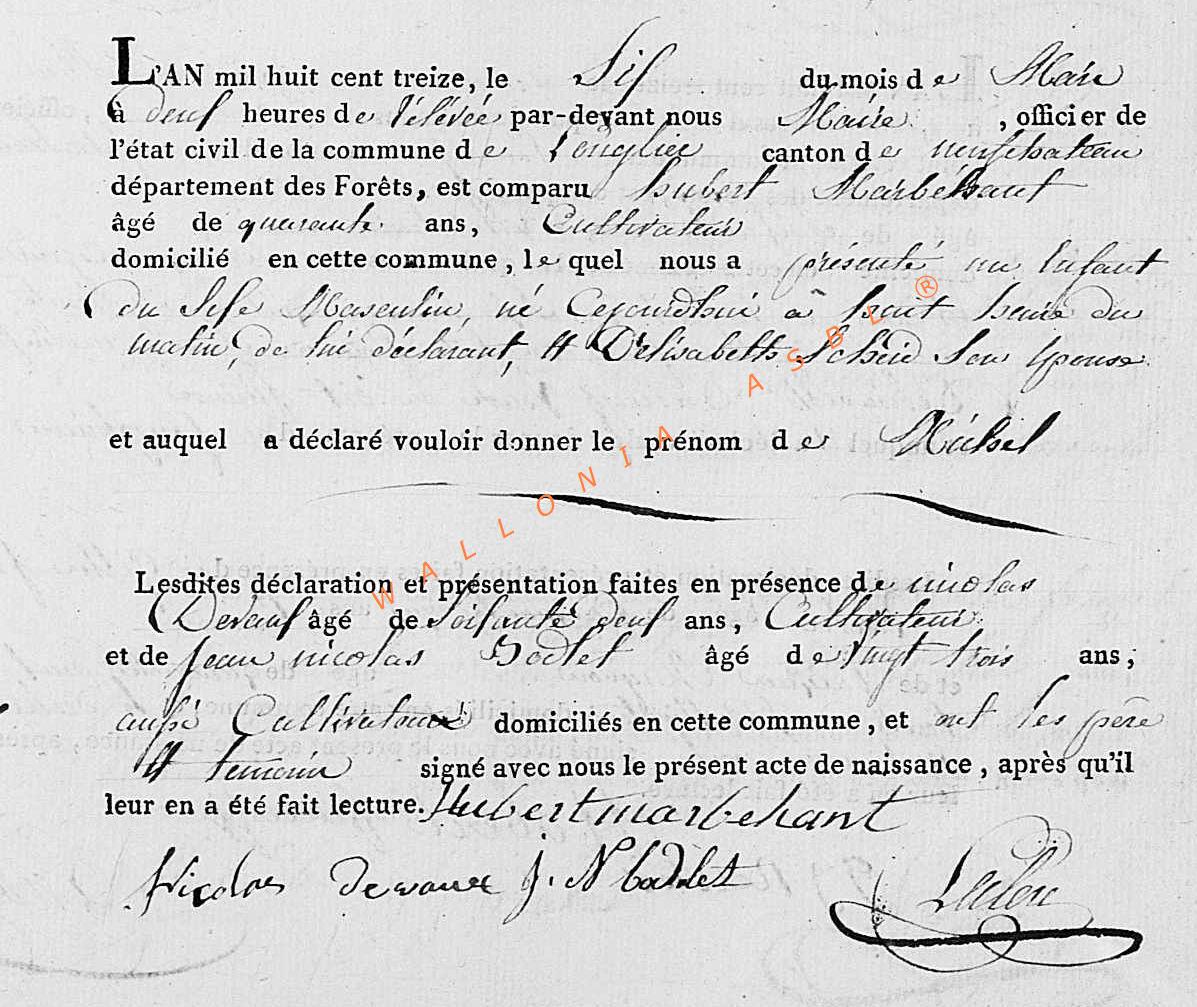 L'AN mil huit cent treize, le Six du mois de Mars
à deux heures de rélévée par-devant nous Maire, officier de
l'état civil de la commune de Longlier canton de neufchateau
département des Forêts, est comparu hubert Marbehant
âgé de quarante ans, Cultivateur
domicilié en cette commune, lequel nous a présenté un Enfant
du Sexe Masculin, né Cejourdhui à huit heure du
matin, de lui déclarant, et D'elisabeth Scheid Son Epouse
et auquel a déclaré vouloir donner le prénom de Michel
Lesdites déclaration et présentation faites en présence de nicolas
Devaux âgé de Soixante deux ans, Cultivateur
et de Jean nicolas Bodlet âgé de Vingt trois ans,
aussi Cultivateur domiciliés en cette commune, et ont les père
et temoin signé avec nous le présent acte de naissance, après qu'il
leur en a été fait lecture. Hubert marbehant
Nicolas Dewaux J. N bodlet Leclerc
WALLONIA ASBL ®